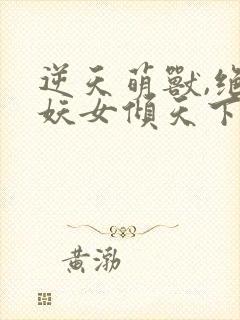 逆天萌獸,絕
妖女傾天下
黃渤